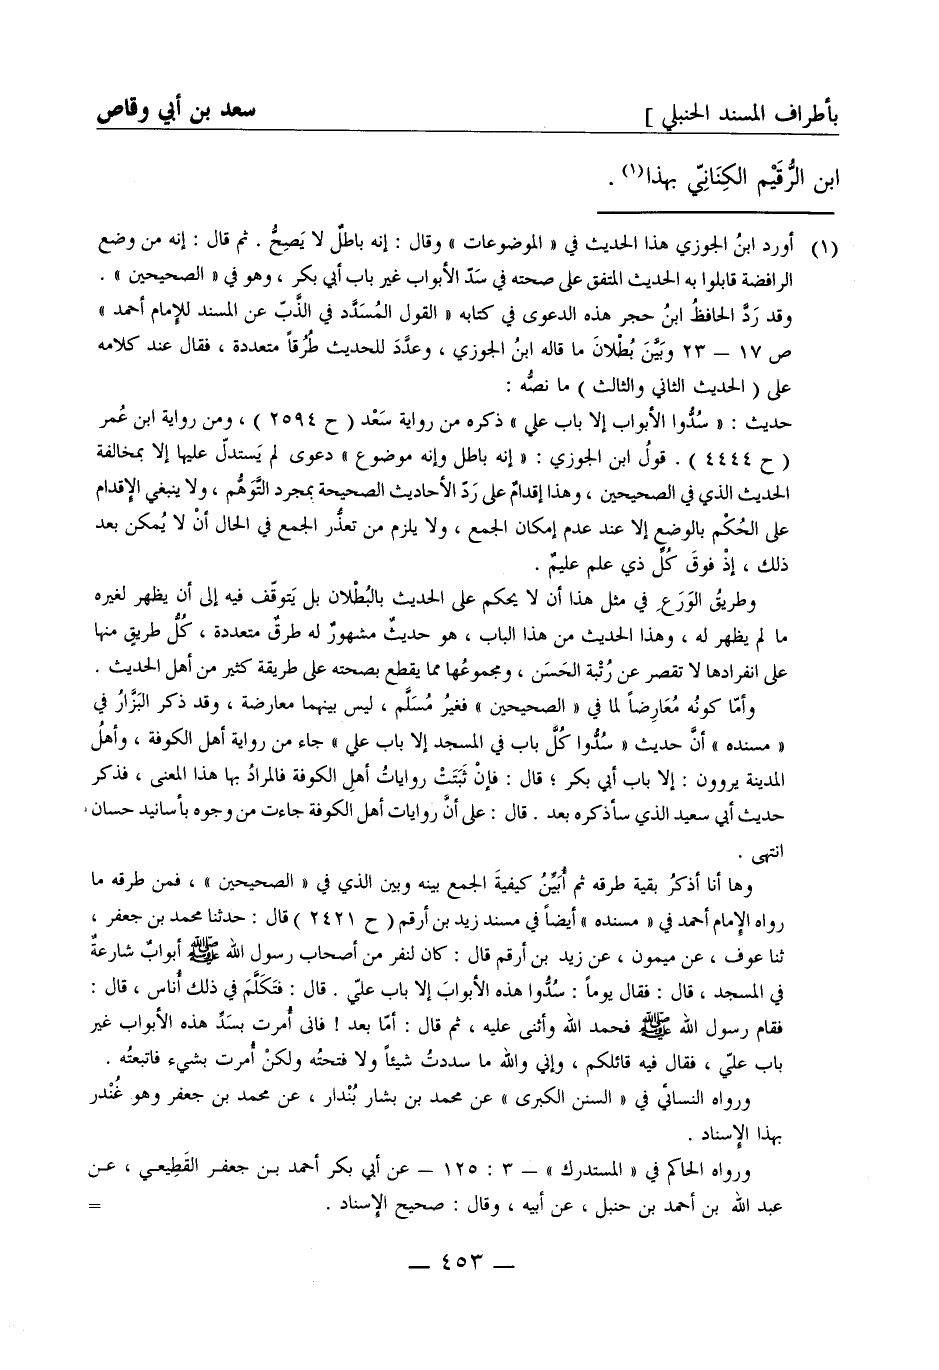 بأطراف المسند الحنبلي ] سعد بن أبي وقاص
ابن الرُّقَيْم الكِنَانِيّ بهذا(١) .
(١) أورد ابنُ الجوزي هذا الحديث في « الموضوعات » وقال : إنه باطلٌ لا يَصِحُّ . ثم قال : إنه من وضع
الرافضة قابلوا به الحديث المتفق على صحته في سَدّ الأبواب غير باب أبي بكر ، وهو في « الصحيحين » .
وقد رَدَّ الحافظُ ابنُ حجر هذه الدعوى في كتابه « القول المُسَدَّد في الذَّبّ عن المسند للإمام أحمد »
ص ١٧ – ٢٣ وبَيَّنَ بُطْلانَ ما قاله ابنُ الجوزي ، وعدَّدَ للحديث طُرُقاً متعددة ، فقال عند كلامه
على ( الحديث الثاني والثالث ) ما نصُّه :
حديث : « سُدُّوا الأبواب إلا باب علي » ذكره من رواية سَعْد ( ح ٢٥٩٤ ) ، ومن رواية ابن عُمر
( ح ٤٤٤٤ ) . قولُ ابن الجوزي : « إنه باطل وإنه موضوع » دعوى لم يَستدلّ عليها إلا بمخالفة
الحديث الذي في الصحيحين ، وهذا إقدامٌ على رَدّ الأحاديث الصحيحة بمجرد التَّوَهُّم ، ولا ينبغي الإقدام
على الحُكْم بالوضع إلا عند عدم إمكان الجمع ، ولا يلزم من تعذُّر الجمع في الحال أنْ لا يُمكن بعد
ذلك ، إذْ فوقَ كُلِّ ذي علم عليمٌ .
وطريقُ الوَرَعِ في مثل هذا أن لا يحكم على الحديث بالبُطْلان بل يَتوقّف فيه إلى أن يظهر لغيره
ما لم يظهر له ، وهذا الحديث من هذا الباب ، هو حديثٌ مشهورٌ له طرقٌ متعددة ، كُلُّ طريقٍ منها
على انفرادها لا تقصر عن رُتْبة الحَسَن ، ومجموعُها مما يقطع بصحته على طريقة كثير من أهل الحديث .
وأمّا كونُه مُعَارِضاً لما في « الصحيحين » فغيرُ مُسَلَّم ، ليس بينهما معارضة ، وقد ذكر البَزَّارُ في
« مسنده » أنَّ حديث « سُدُّوا كُلَّ باب في المسجد إلا باب علي » جاء من رواية أهل الكوفة ، وأهلُ
المدينة يروون : إلا باب أبي بكر ؛ قال : فإنْ ثَبَتَتْ رواياتُ أهلِ الكوفة فالمرادُ بها هذا المعنى ، فذكر
حديث أبي سعيد الذي سأذكره بعد . قال : على أنَّ روايات أهل الكوفة جاءت من وجوه بأسانيد حسان ،
انتهى .
وها أنا أذكرُ بقية طرقه ثم أُبَيِّنُ كيفيةَ الجمع بينه وبين الذي في « الصحيحين » ، فمن طرقه ما
رواه الإمام أحمد في « مسنده » أيضاً في مسند زيد بن أرقم ( ح ٢٤٢١ ) قال : حدثنا محمد بن جعفر ،
ثنا عوف ، عن ميمون ، عن زيد بن أرقم قال : كان لنفر من أصحاب رسول الله ﷺ أبوابٌ شارعةٌ
في المسجد ، قال : فقال يوماً : سُدُّوا هذه الأبوابَ إلا باب عليّ . قال : فتَكَلَّمَ في ذلك أُناس ، قال :
فقام رسول الله ﷺ فحمد الله وأثنى عليه ، ثم قال : أمّا بعد ! فانى أُمرت بسَدِّ هذه الأبواب غير
باب عليّ ، فقال فيه قائلكم ، وإني والله ما سددتُ شيئاً ولا فتحتُه ولكنْ أُمرت بشيء فاتبعتُه .
ورواه النسائي في « السنن الكبرى » عن محمد بن بشار بُنْدار ، عن محمد بن جعفر وهو غُنْدر
بهذا الإسناد .
ورواه الحاكم في « المستدرك » – ٣ : ١٢٥ – عن أبي بكر أحمد بن جعفر القَطِيعي ، عن
عبد الله بن أحمد بن حنبل ، عن أبيه ، وقال : صحيح الإسناد . =
— ٤٥٣ —